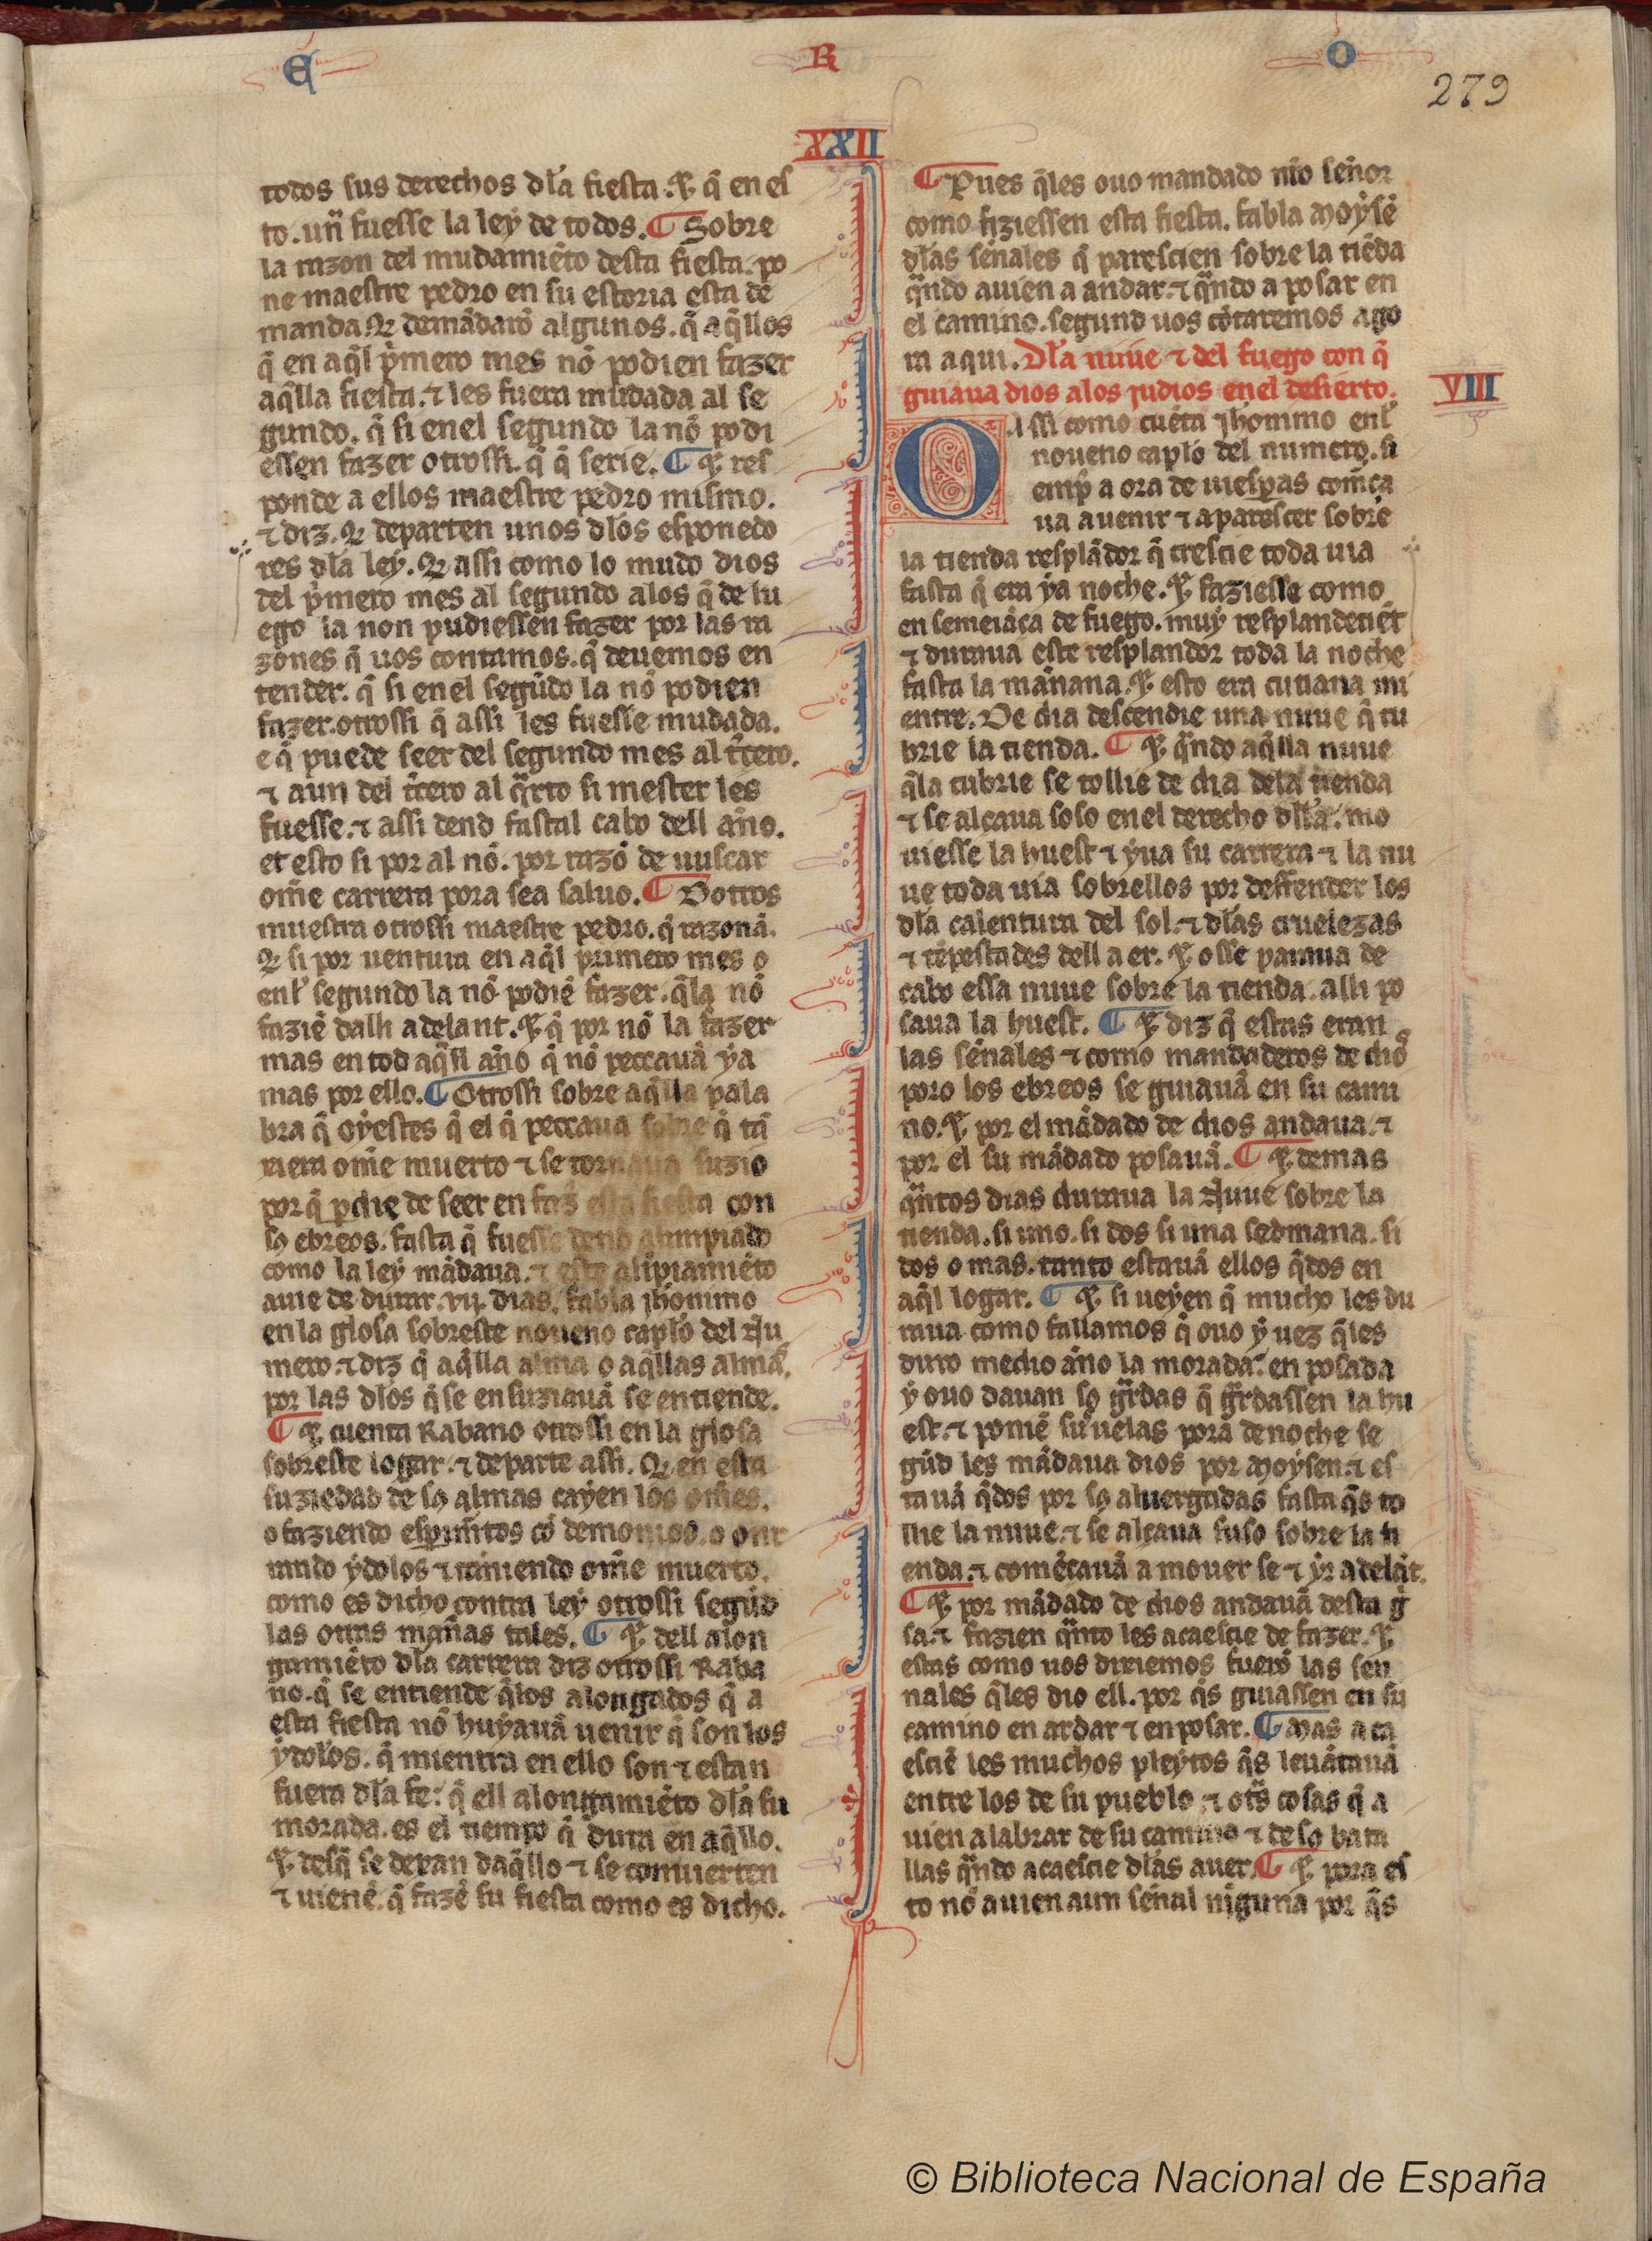 E R O
279
XXII
todos sus derechos dła fiesta. ⁊ q̃ en es
to. un̄ fuesse la ley de todos. ¶ Sobre
la razon del mudamiẽto desta fiesta. po
ne maestre pedro en su estoria esta de
manda. Q̃ demãdarõ algunos. q̃ aq̃llos
q̃ en aq̃l p̃mero mes nõ podien fazer
aq̃lla fiesta. ⁊ les fuera mudada al se
gundo. q̃ si enel segundo la nõ podi
essen fazer otrossi. q̃ q̃ serie. ¶ ⁊ res
ponde a ellos maestre pedro mismo.
⁊ diz. Q̃ departen unos dłos esponedo
res dła ley. Q̃ assi como lo mudo dios
del p̃mero mes al segundo alos q̃ de lu
ego la non pudiessen fazer por las ra
zones q̃ uos contamos. q̃ deuemos en
tender. q̃ si enel segũdo la nõ podien
fazer. otrossi q̃ assi les fuesse mudada.
e q̃ puede seer del segundo mes al t̃cero.
⁊ aun del t̃cero al q̃rto si mester les
fuesse. ⁊ assi dend fastal cabo dell año.
et esto si por al nõ. por razõ de uuscar
om̃e carrera pora sea saluo. ¶ Dotros
muestra otrossi maestre pedro. q̃ razonã.
Q̃ si por uentura en aq̃l primero mes o
enł segundo la nõ podiẽ fazer. q̃la nõ
faziẽ dalli adelant. ⁊ q̃ por nõ la fazer
mas en tod aq̃ll año q̃ nõ peccauã ya
mas por ello. ¶ Otrossi sobre aq̃lla pala
bra q̃ oyestes q̃ el q̃ peccaua sobre q̃ tã
niera om̃e muerto ⁊ se tornaua suzio
por q̃ p̱die de seer en faz esta fiesta con
ls̉ ebreos. fasta q̃ fuesse dend alimpiado
como la ley mãdaua. ⁊ este alĩpiamiẽto
auie de durar. vij. dias. fabla jhõnimo
en la glosa sobreste noueno capło del Nu
mero. ⁊ diz q̃ aq̃lla alma o aq̃llas almas.
por las dłos q̃ se ensuziauã se entiende.
¶ ⁊ cuenta Rabano otrossi en la glosa
sobreste logar. ⁊ departe assi. Q̃ en esta
suziedad de ls̉ almas cayen los om̃es.
o faziendo esp̱im̃tos cõ demonios. o onr
rando ydolos ⁊ tãniendo om̃e muerto.
como es dicho contra ley otrossi segũd
las otras mañas tales. ¶ ⁊ dell alon
gamiẽto dła carrera diz otrossi Raba
no. q̃ se entiende q̃los alongados q̃ a
esta fiesta nõ huyauã uenir q̃ son los
ydolos. q̃ mientra en ello son ⁊ estan
fuera dła fe. q̃ ell alongamiẽto dła su
morada. es el tiempo q̃ dura en aq̃llo.
⁊ desq̃ se dexan daq̃llo ⁊ se conuierten
⁊ uienẽ. q̃ fazẽ su fiesta como es dicho.
¶ Pues q̃les ouo mandado nr̃o señor
como fiziessen esta fiesta. fabla moysẽ
dłas señales q̃ parescien sobre la tiẽda
q̃ndo auien a andar. ⁊ q̃ndo a posar en
el camino. segund uos cõtaremos ago
ra aqui. Dła nuue ⁊ del fuego con q̃
guiaua dios alos judios enel desierto.
VIII
O assi como cuẽta jhommo enł
noueno capło del numero. si
emp̃ a ora de uiesp̱as comẽça
ua auenir ⁊ aparescer sobre
la tienda resplãdor q̃ crescie toda uia
fasta q̃ era ya noche. ⁊ faziesse como
en semeiãça de fuego. muy resplandeciẽt
⁊ duraua este resplandor toda la noche
fasta la mañana. ⁊ esto era cutiana mi
entre. De dia descendie una nuue q̃ cu
brie la tienda. ¶ ⁊ q̃ndo aq̃lla nuue
q̃la cubrie se tollie de dia dela tienda
⁊ se alçaua soso enel derecho dłla. mo
uiesse la huest ⁊ yua su carrera ⁊ la nu
ue toda uia sobrellos por deffender los
dła calentura del sol. ⁊ dłas cruelezas
⁊ tẽpestades dell aer. ⁊ osse paraua de
cabo essa nuue sobre la tienda. assi po
saua la huest. ¶ ⁊ diz q̃ estas eran
las señales ⁊ como mandaderos de dios
poro los ebreos se guiauã en su cami
no. ⁊ por el mãdado de dios andaua. ⁊
por el su mãdado posauã. ¶ ⁊ demas
q̃ntos dias duraua la Nuue sobre la
tienda. si uno. si dos si una sedmana. si
dos o mas. tanto estauã ellos q̃dos en
aq̃l logar. ¶ ⁊ si ueyen q̃ mucho les du
raua como fallamos q̃ ouo y uez q̃les
duro medio año la morada. en posada
y ouo dauan ss̉ g̃rdas q̃ g̃rdassen la hu
est. ⁊ poniẽ su uelas porã de noche se
gũd les mãdaua dios por moysen. ⁊ es
tauã q̃dos por ss̉ aluergadas fasta q̃s to
llie la nuue. ⁊ se alçaua suso sobre la ti
enda. ⁊ comẽçauã a mouer se ⁊ yr adelãt.
¶ ⁊ por mãdado de dios andauã desta g̃i
sa. ⁊ fazien q̃nto les acaescie de fazer. ⁊
estas como uos dixiemos fuerõ las sen
nales q̃les dio ell. por q̃s guiassen en su
camino en andar ⁊ en posar. ¶ Mas aca
esciẽ les muchos pleytos q̃s leuãtauã
entre los de su pueblo. ⁊ ot̃s cosas q̃ a
uien alabrar de su camino ⁊ de ss̉ bata
llas q̃ndo acaescie dłas auer. ¶ ⁊ pora es
to nõ auien aun señal nĩguna por q̃s
© Biblioteca Nacional de España